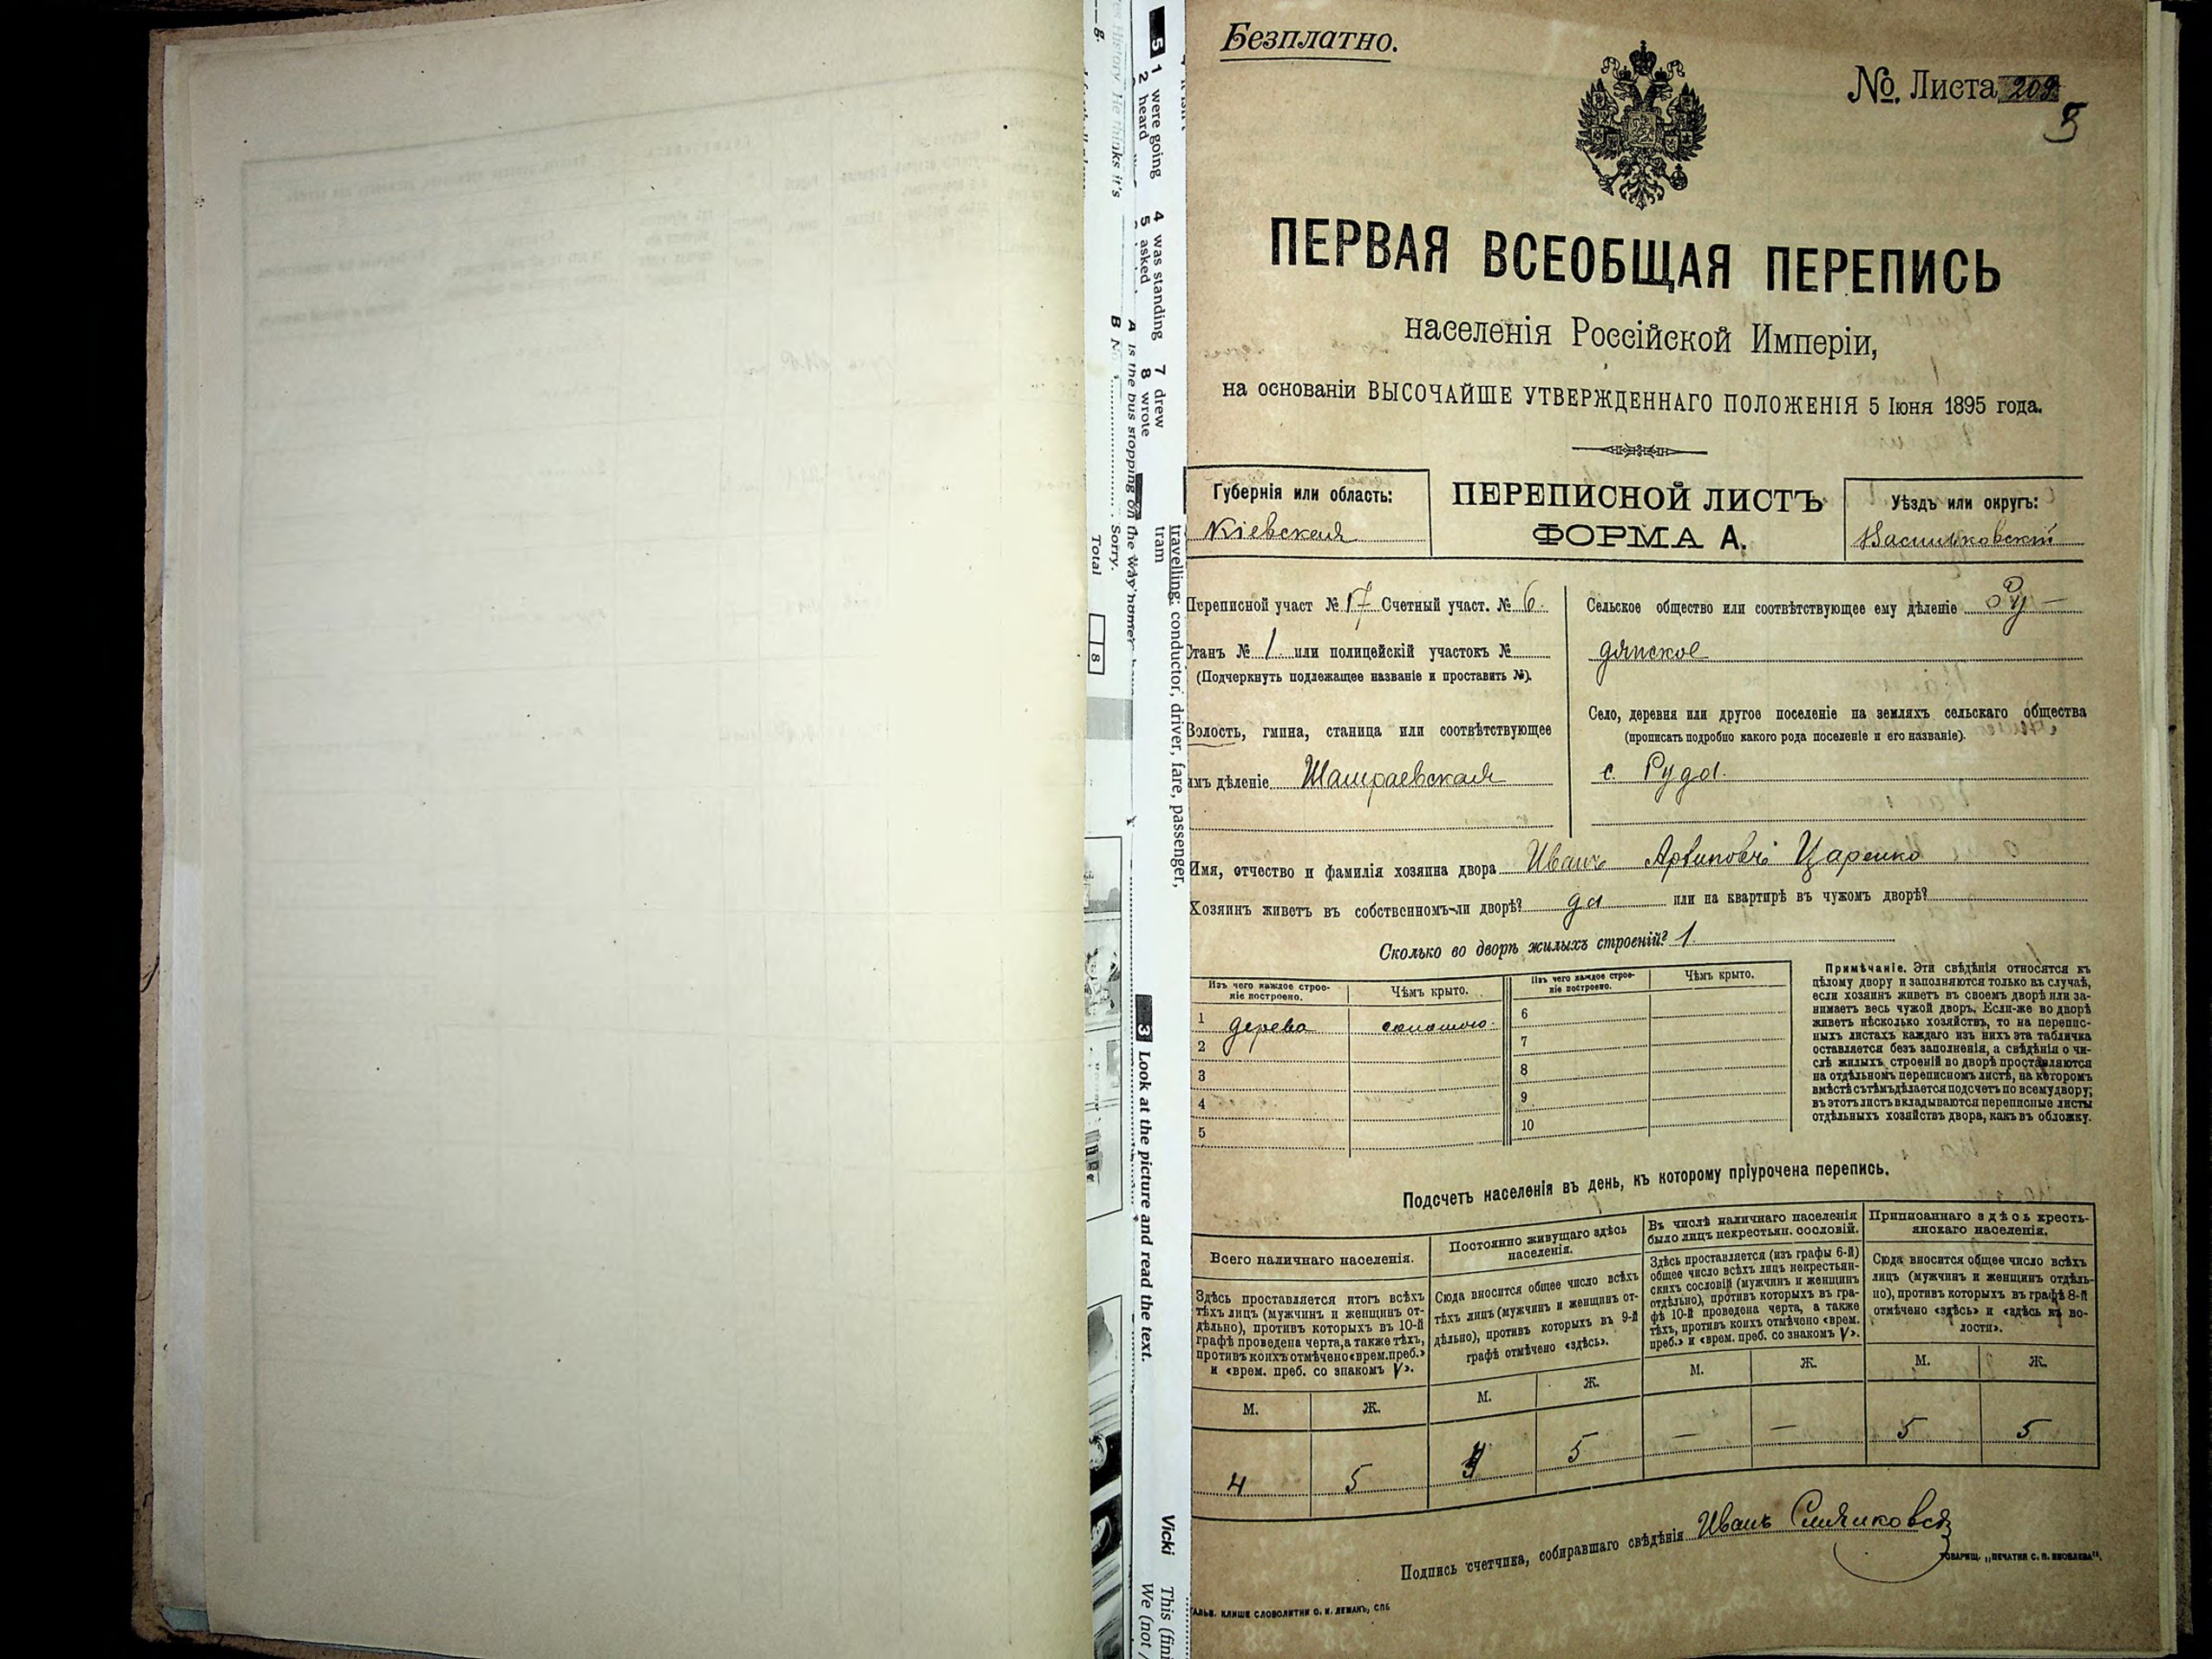 Безплатно.
№. Листа 209
5
ПЕРВАЯ ВСЕОБЩАЯ ПЕРЕПИСЬ
населенія Россійской Имперіи,
на основаніи ВЫСОЧАЙШЕ УТВЕРЖДЕННАГО ПОЛОЖЕНІЯ 5 Іюня 1895 года.
Губернія или область:
Кіевская
ПЕРЕПИСНОЙ ЛИСТЪ
ФОРМА А.
Уѣздъ или округъ:
Васильковскій
Переписной участ № 17 Счетный участ. № 6.
Станъ № 1 или полицейскій участокъ №
(Подчеркнуть подлежащее названіе и проставить №).
Волость, гмина, станица или соотвѣтствующее
имъ дѣленіе Шамраевская
Сельское общество или соотвѣтствующее ему дѣленіе Ру-
дянское
Село, деревня или другое поселеніе на земляхъ сельскаго общества
(прописать подробно какого рода поселеніе и его названіе).
с. Руда.
Имя, отчество и фамилія хозяина двора Иванъ Царенко
Хозяинъ живетъ въ собственномъ-ли дворѣ? да или на квартирѣ въ чужомъ дворѣ?
Сколько во дворѣ жилыхъ строеній? 1.
Изъ чего каждое строе-
ніе построено.
Чѣмъ крыто.
Изъ чего каждое строе-
ніе построено.
Чѣмъ крыто.
1 дерева соломою.
2
3
4
5
6
7
8
9
10
Примѣчаніе. Эти свѣдѣнія относятся къ
цѣлому двору и заполняются только въ случаѣ,
если хозяинъ живетъ въ своемъ дворѣ или за-
нимаетъ весь чужой дворъ. Если-же во дворѣ
живетъ нѣсколько хозяйствъ, то на перепис-
ныхъ листахъ каждаго изъ нихъ эта табличка
оставляется безъ заполненія, а свѣдѣнія о чи-
слѣ жилыхъ строеній во дворѣ проставляются
на отдѣльномъ переписномъ листѣ, на которомъ
вмѣстѣ съ тѣмъ дѣлается подсчетъ по всему двору;
въ этотъ листъ вкладываются переписные листы
отдѣльныхъ хозяйствъ двора, какъ въ обложку.
Подсчетъ населенія въ день, къ которому пріурочена перепись.
Всего наличнаго населенія.
Здѣсь проставляется итогъ всѣхъ
тѣхъ лицъ (мужчинъ и женщинъ от-
дѣльно), противъ которыхъ въ 10-й
графѣ проведена черта, а также тѣхъ,
противъ коихъ отмѣчено «врем. преб.»
и «врем. преб. со знакомъ V».
М. Ж.
4 5
Постоянно живущаго здѣсь
населенія.
Сюда вносится общее число всѣхъ
тѣхъ лицъ (мужчинъ и женщинъ от-
дѣльно), противъ которыхъ въ 9-й
графѣ отмѣчено «здѣсь».
М. Ж.
5
Въ числѣ наличнаго населенія
было лицъ некрестьян. сословій.
Здѣсь проставляется (изъ графы 6-й)
общее число всѣхъ лицъ некрестьян-
скихъ сословій (мужчинъ и женщинъ
отдѣльно), противъ которыхъ въ гра-
фѣ 10-й проведена черта, а также
тѣхъ, противъ коихъ отмѣчено «врем.
преб.» и «врем. преб. со знакомъ V».
М. Ж.
— —
Приписаннаго здѣсь кресть-
янскаго населенія.
Сюда вносится общее число всѣхъ
лицъ (мужчинъ и женщинъ отдѣль-
но), противъ которыхъ въ графѣ 8-й
отмѣчено «здѣсь» и «здѣсь въ во-
лости».
М. Ж.
5 5
Подпись счетчика, собиравшаго свѣдѣнія Иванъ
ТОВАРИЩ. „ПЕЧАТНЯ С. П. ЯКОВЛЕВА".
ГАЛЬВ. КЛИШЕ СЛОВОЛИТНИ О. И. ЛЕМАНЪ, СПБ
5 1 were going 4 was standing 7 drew
2 heard 5 asked 8 wrote
History. He thinks it's
A Is the bus stopping on the way home?
B N Sorry.
Total 8
travelling: conductor, driver, fare, passenger,
tram
3 Look at the picture and read the text.
Vicki This (fin
We (not